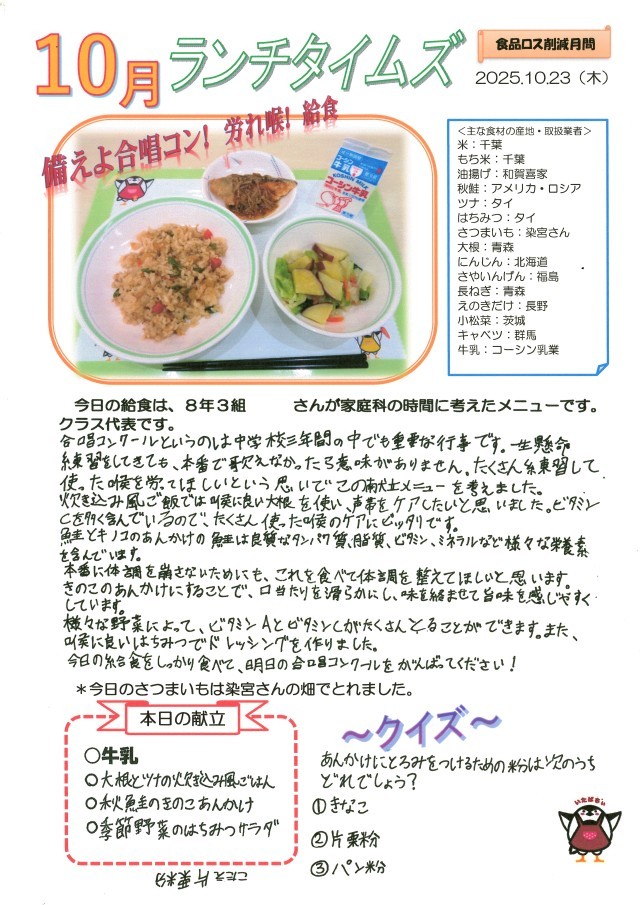 10月 ランチタイムズ
食品ロス削減月間
2025.10.23（木）
備えよ合唱コン! 労れ喉! 給食
コーシン牛乳
<主な食材の産地・取扱業者>
米：千葉
もち米：千葉
油揚げ：和賀喜家
秋鮭：アメリカ・ロシア
ツナ：タイ
はちみつ：タイ
さつまいも：染宮さん
大根：青森
にんじん：北海道
さやいんげん：福島
長ねぎ：青森
えのきだけ：長野
小松菜：茨城
キャベツ：群馬
牛乳：コーシン乳業
今日の給食は、８年３組　　　さんが家庭科の時間に考えたメニューです。
クラス代表です。
合唱コンクールというのは中学校三年間の中でも重要な行事です。一生懸命
練習をしてきても、本番で歌えなかったら意味がありません。たくさん練習して
使った喉を労ってほしいという思いでこの献立メニューを考えました。
炊き込み風ご飯では喉に良い大根を使い、声帯をケアしたいと思いました。ビタミン
Cを多く含んでいるので、たくさん使った喉のケアにピッタリです。
鮭とキノコのあんかけの鮭は良質なタンパク質、脂質、ビタミン、ミネラルなど様々な栄養素
を含んでいます。
本番に体調を崩さないためにも、これを食べて体調を整えてほしいと思います。
きのこのあんかけにすることで、口当たりを滑らかにし、味を絡ませて旨味を感じやすく
しています。
様々な野菜によって、ビタミンAとビタミンCがたくさんとることができます。また、
喉に良いはちみつでドレッシングを作りました。
今日の給食をしっかり食べて、明日の合唱コンクールをがんばってください！
＊今日のさつまいもは染宮さんの畑でとれました。
本日の献立
○牛乳
○大根とツナの炊き込み風ごはん
○秋鮭のきのこあんかけ
○季節野菜のはちみつサラダ
～クイズ～
あんかけにとろみをつけるための粉は次のうち
どれでしょう？
①きなこ
②片栗粉
③パン粉
いたばちぃ
こたえ 片栗粉